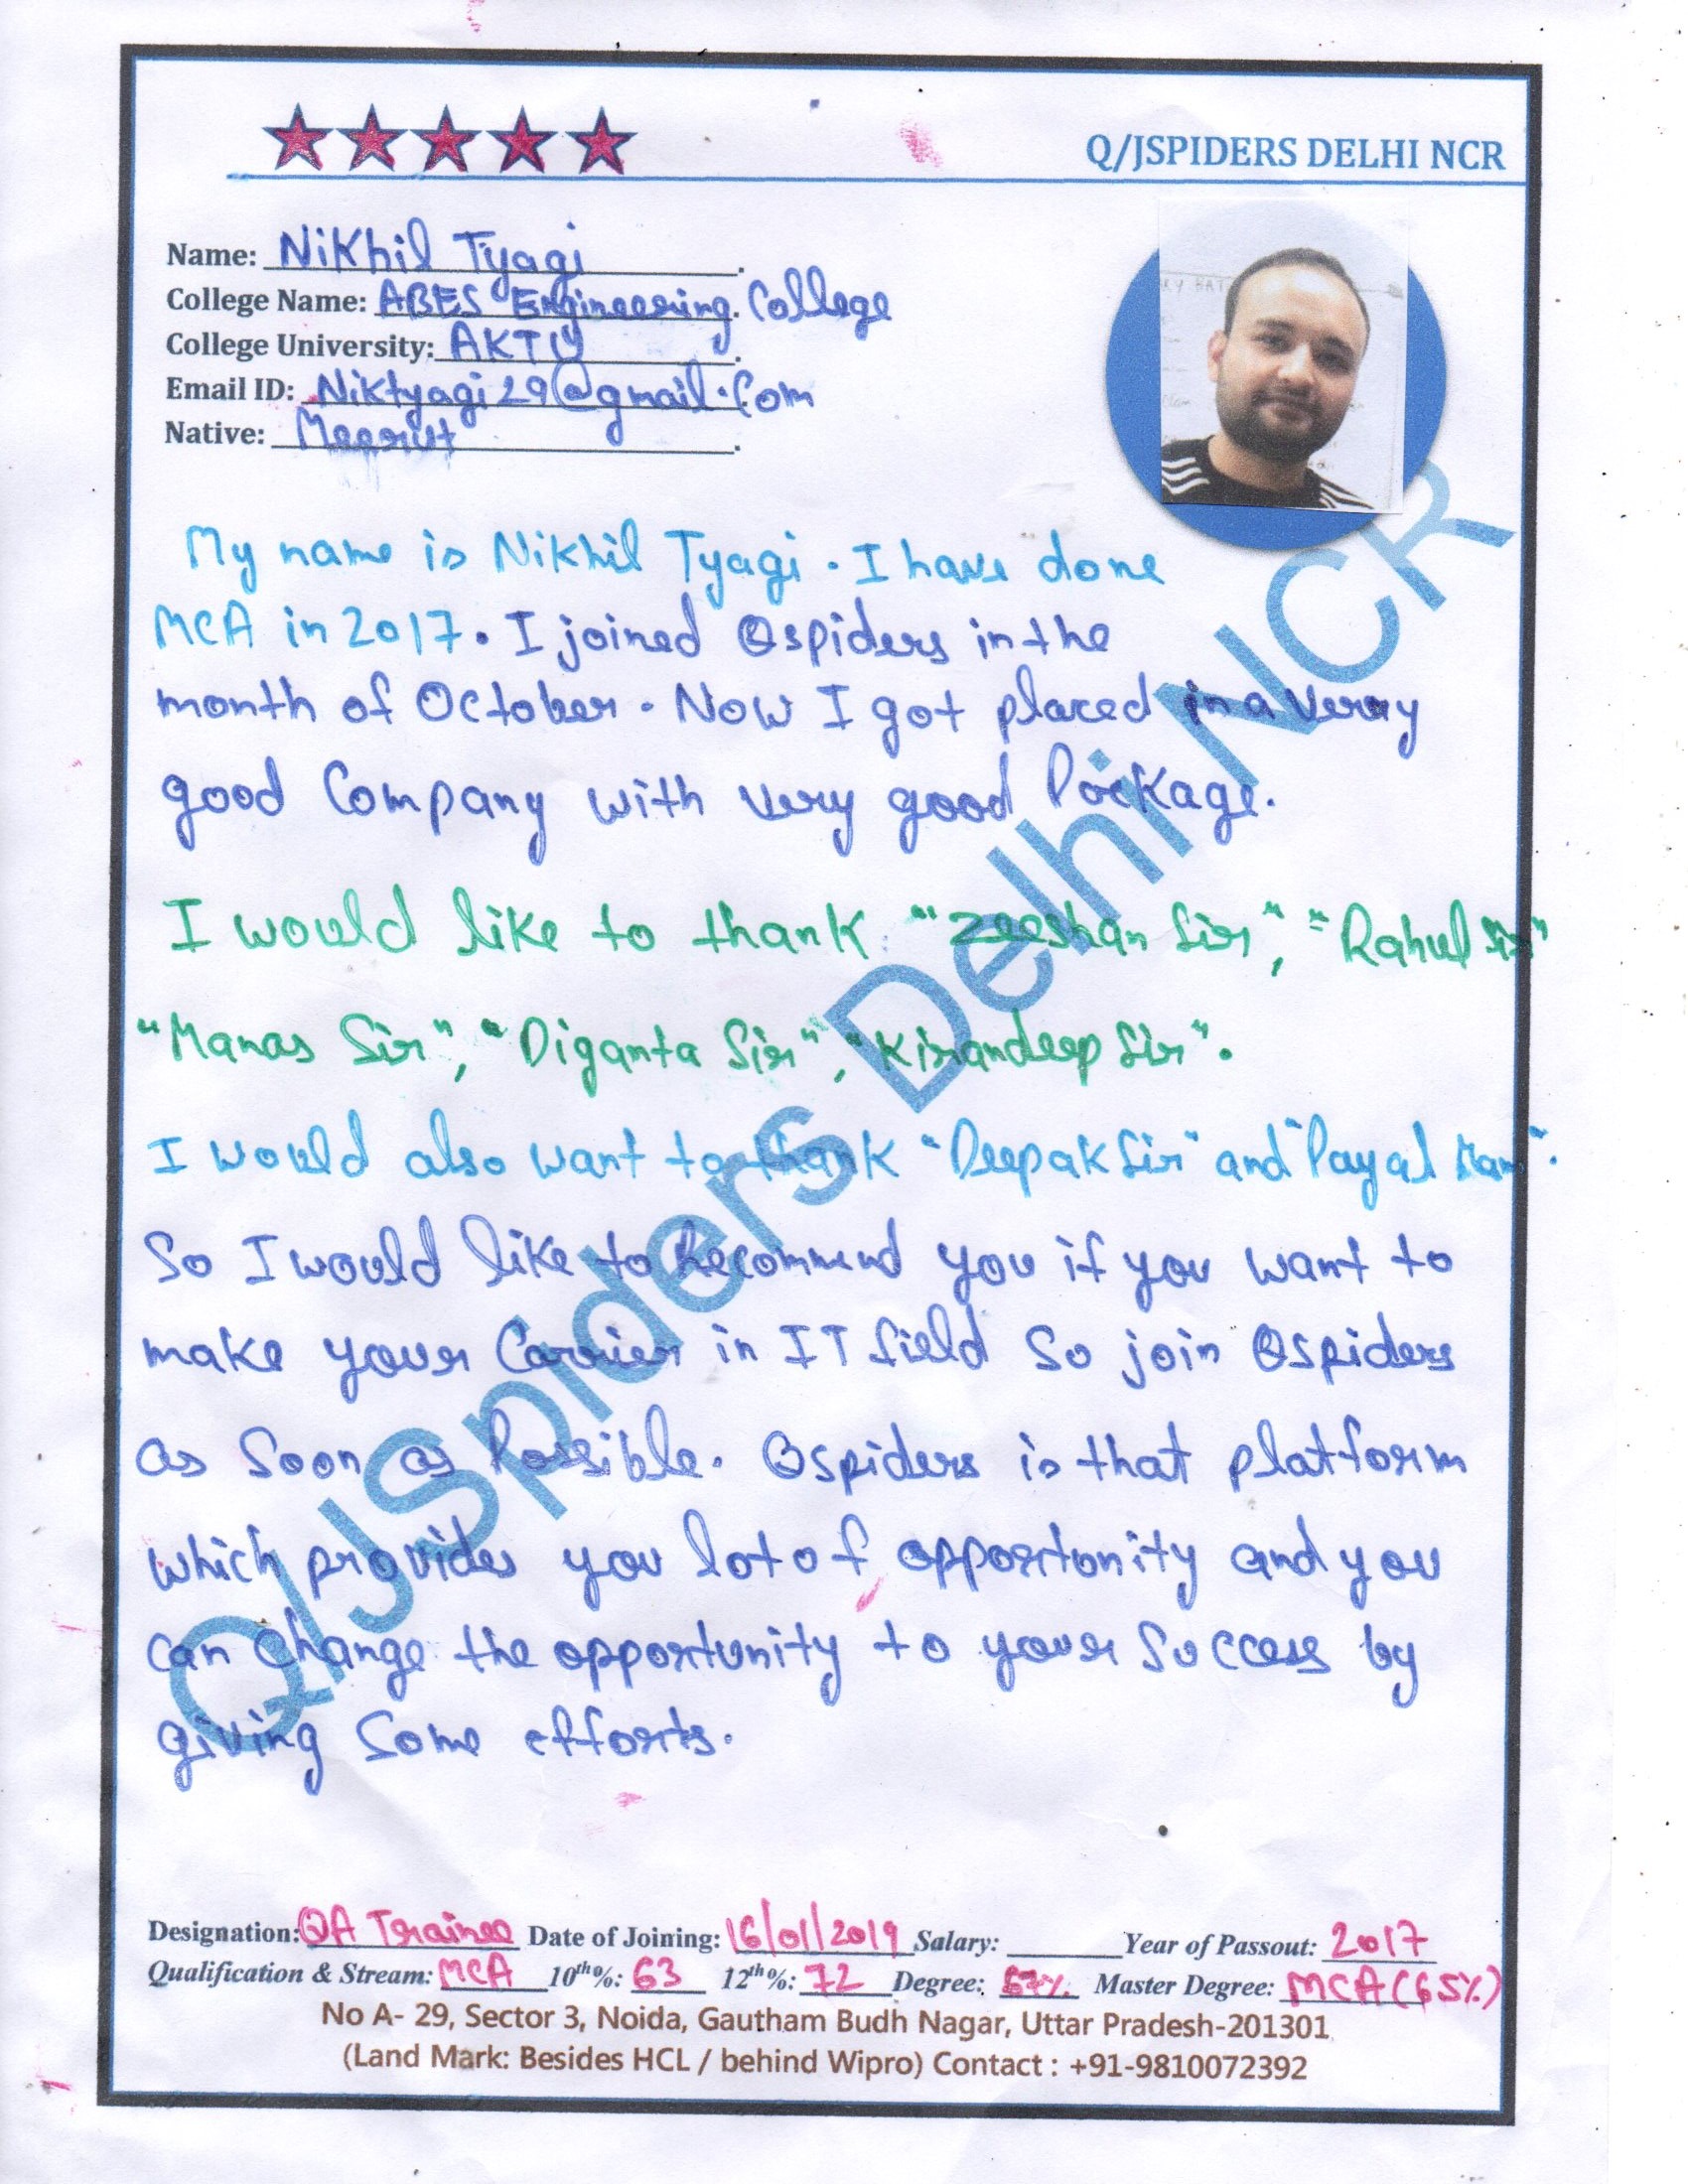 Q/JSPIDERS DELHI NCR
Name: Nikhil Tyagi.
College Name: ABES Engineering. College
College University: AKTU.
Email ID: Niktyagi29@gmail.com
Native: Meerut.
My name is Nikhil Tyagi. I have done
MCA in 2017. I joined Qspiders in the
month of October. Now I got placed in a very
good Company with very good Package.
I would like to thank "Zeeshan Sir", "Rahul Sir"
"Manas Sir", "Diganta Sir", "Kirandeep Sir".
I would also want to thank "Deepak Sir" and "Payal Mam".
So I would like to Recommend you if you want to
make your Carrier in IT field So join Qspiders
as Soon as Possible. Qspiders is that platform
which provides you lot of opportunity and you
can change the opportunity to your Success by
giving Some efforts.
Q/JSpiders Delhi NCR
Designation: QA Trainee Date of Joining: 16/01/2019 Salary: Year of Passout: 2017
Qualification & Stream: MCA 10th%: 63 12th%: 72 Degree: 67% Master Degree: MCA (65%)
No A- 29, Sector 3, Noida, Gautham Budh Nagar, Uttar Pradesh-201301
(Land Mark: Besides HCL / behind Wipro) Contact : +91-9810072392